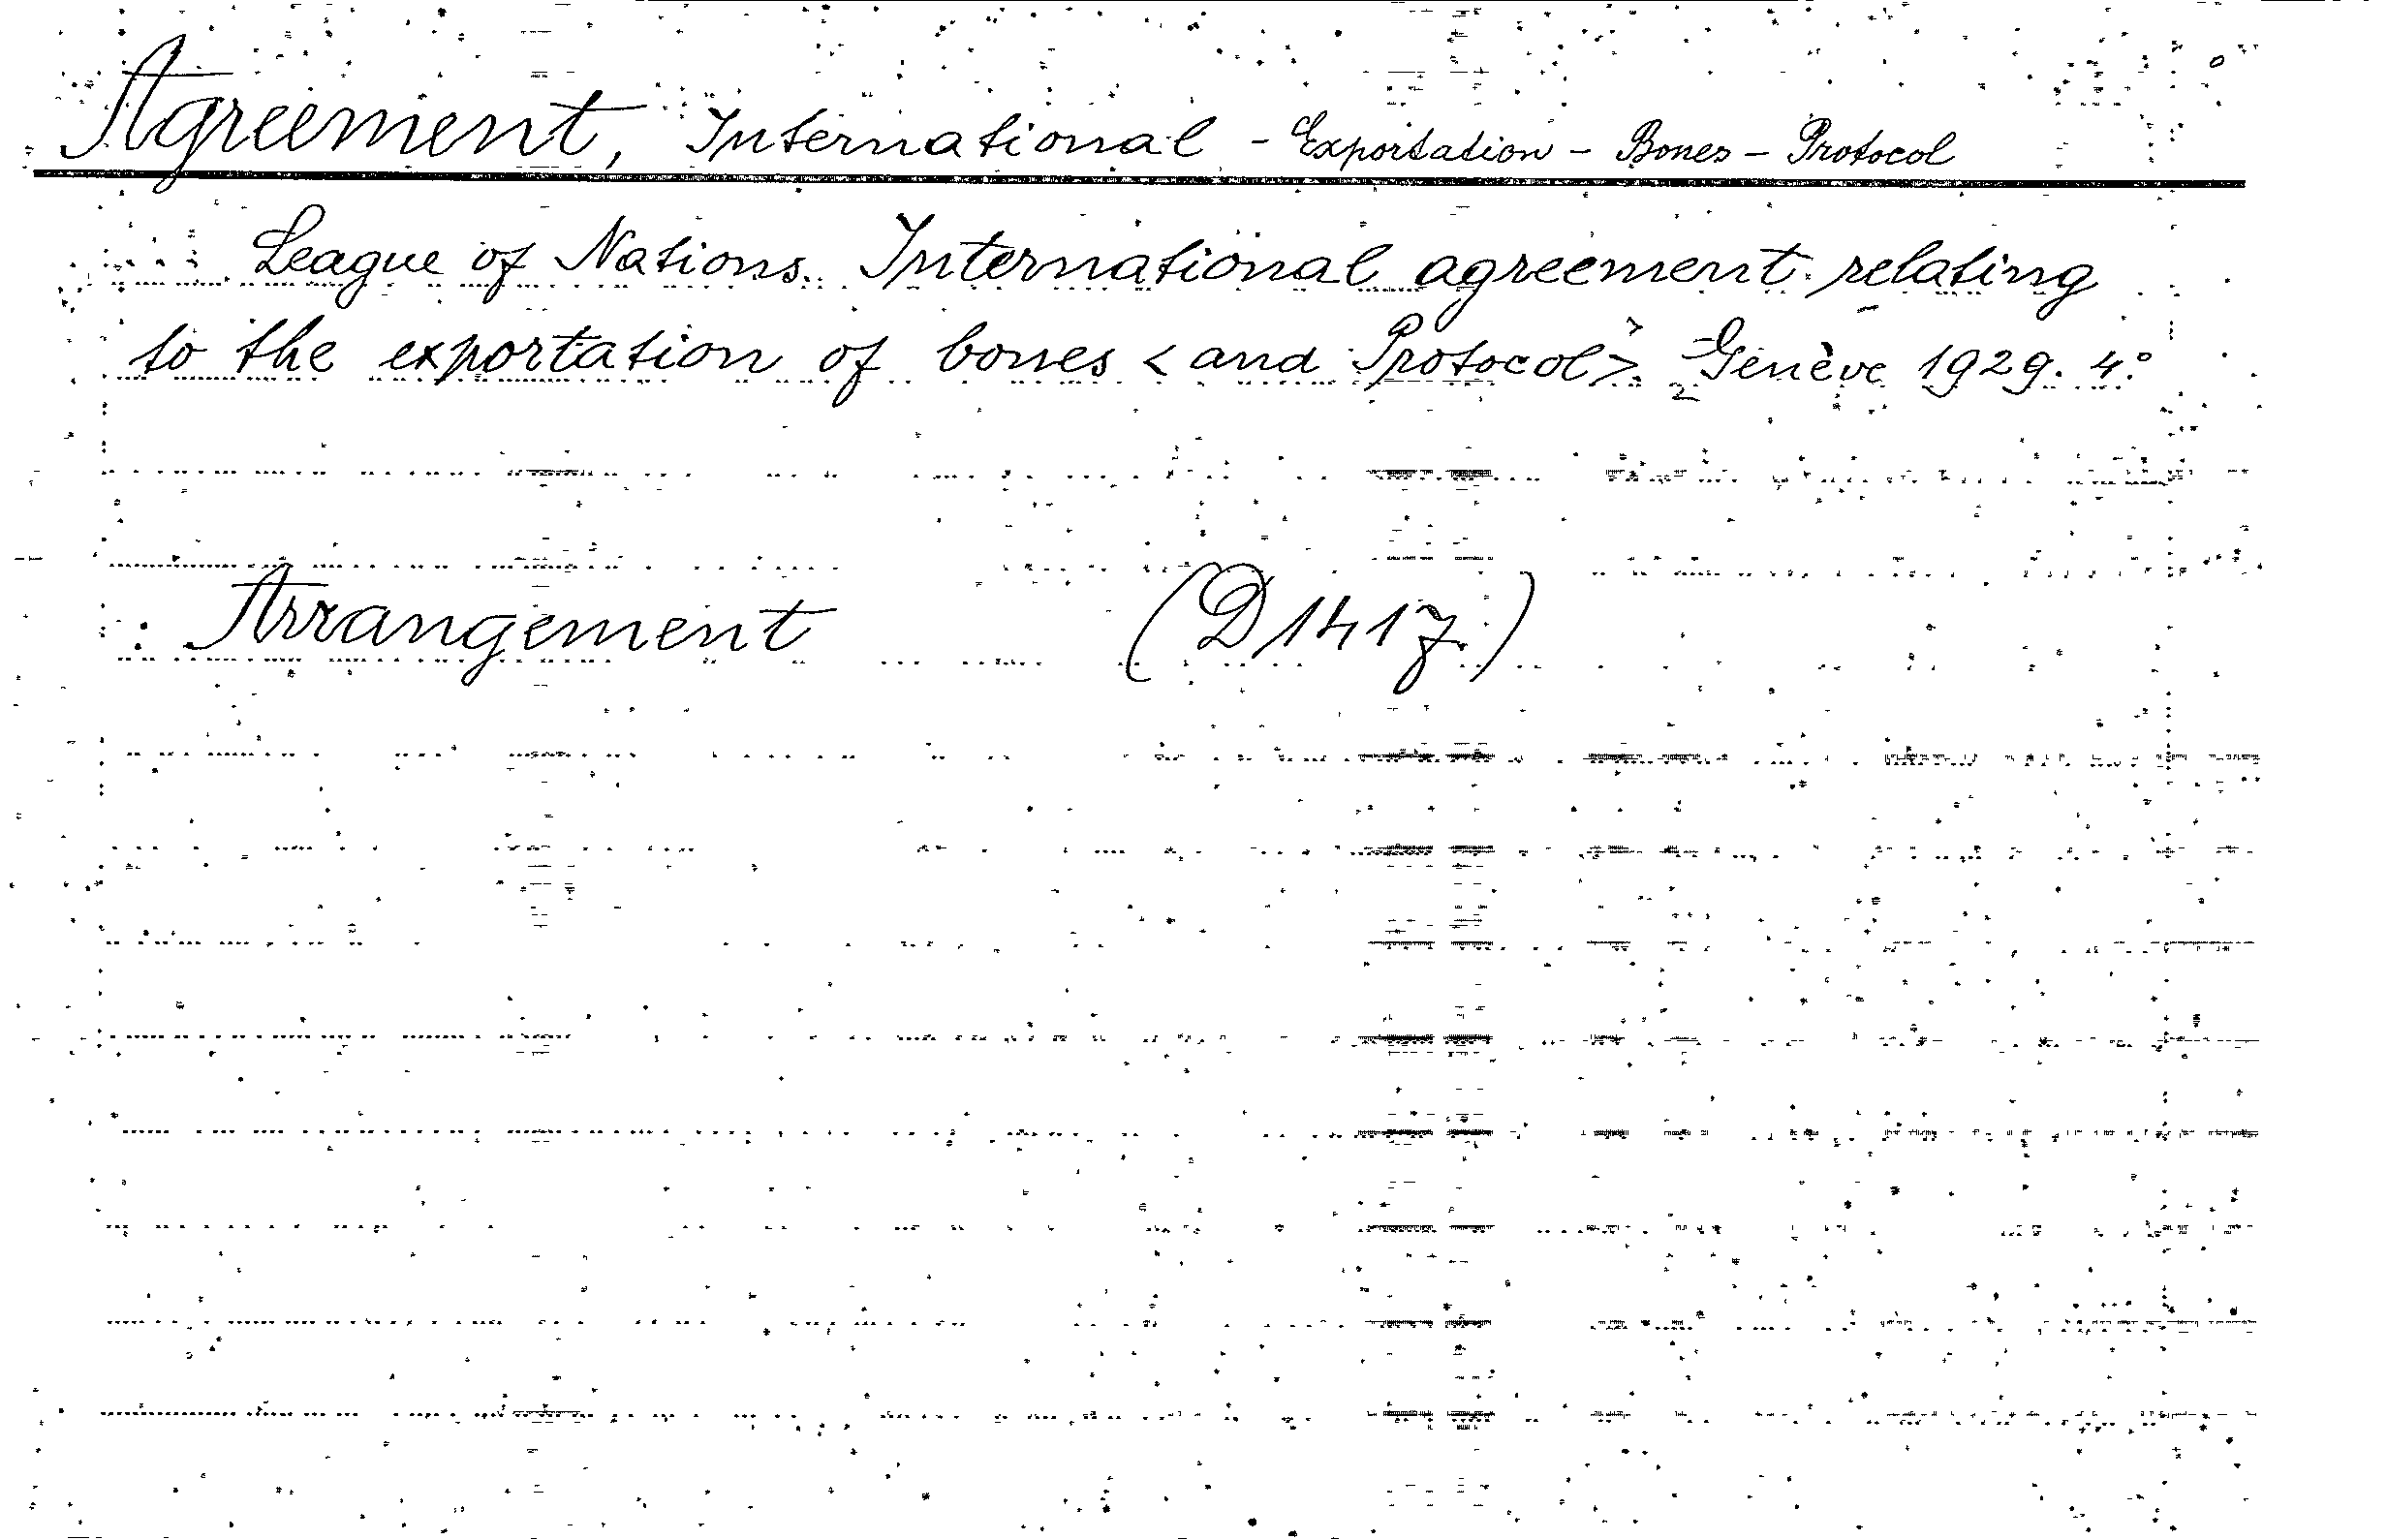 Agreement, International - Exportation - Bones - Protocol
League of Nations. International agreement relating
to the exportation of bones < and Protocol >. Genève 1929. 4°.
Arrangement (D 1417.)